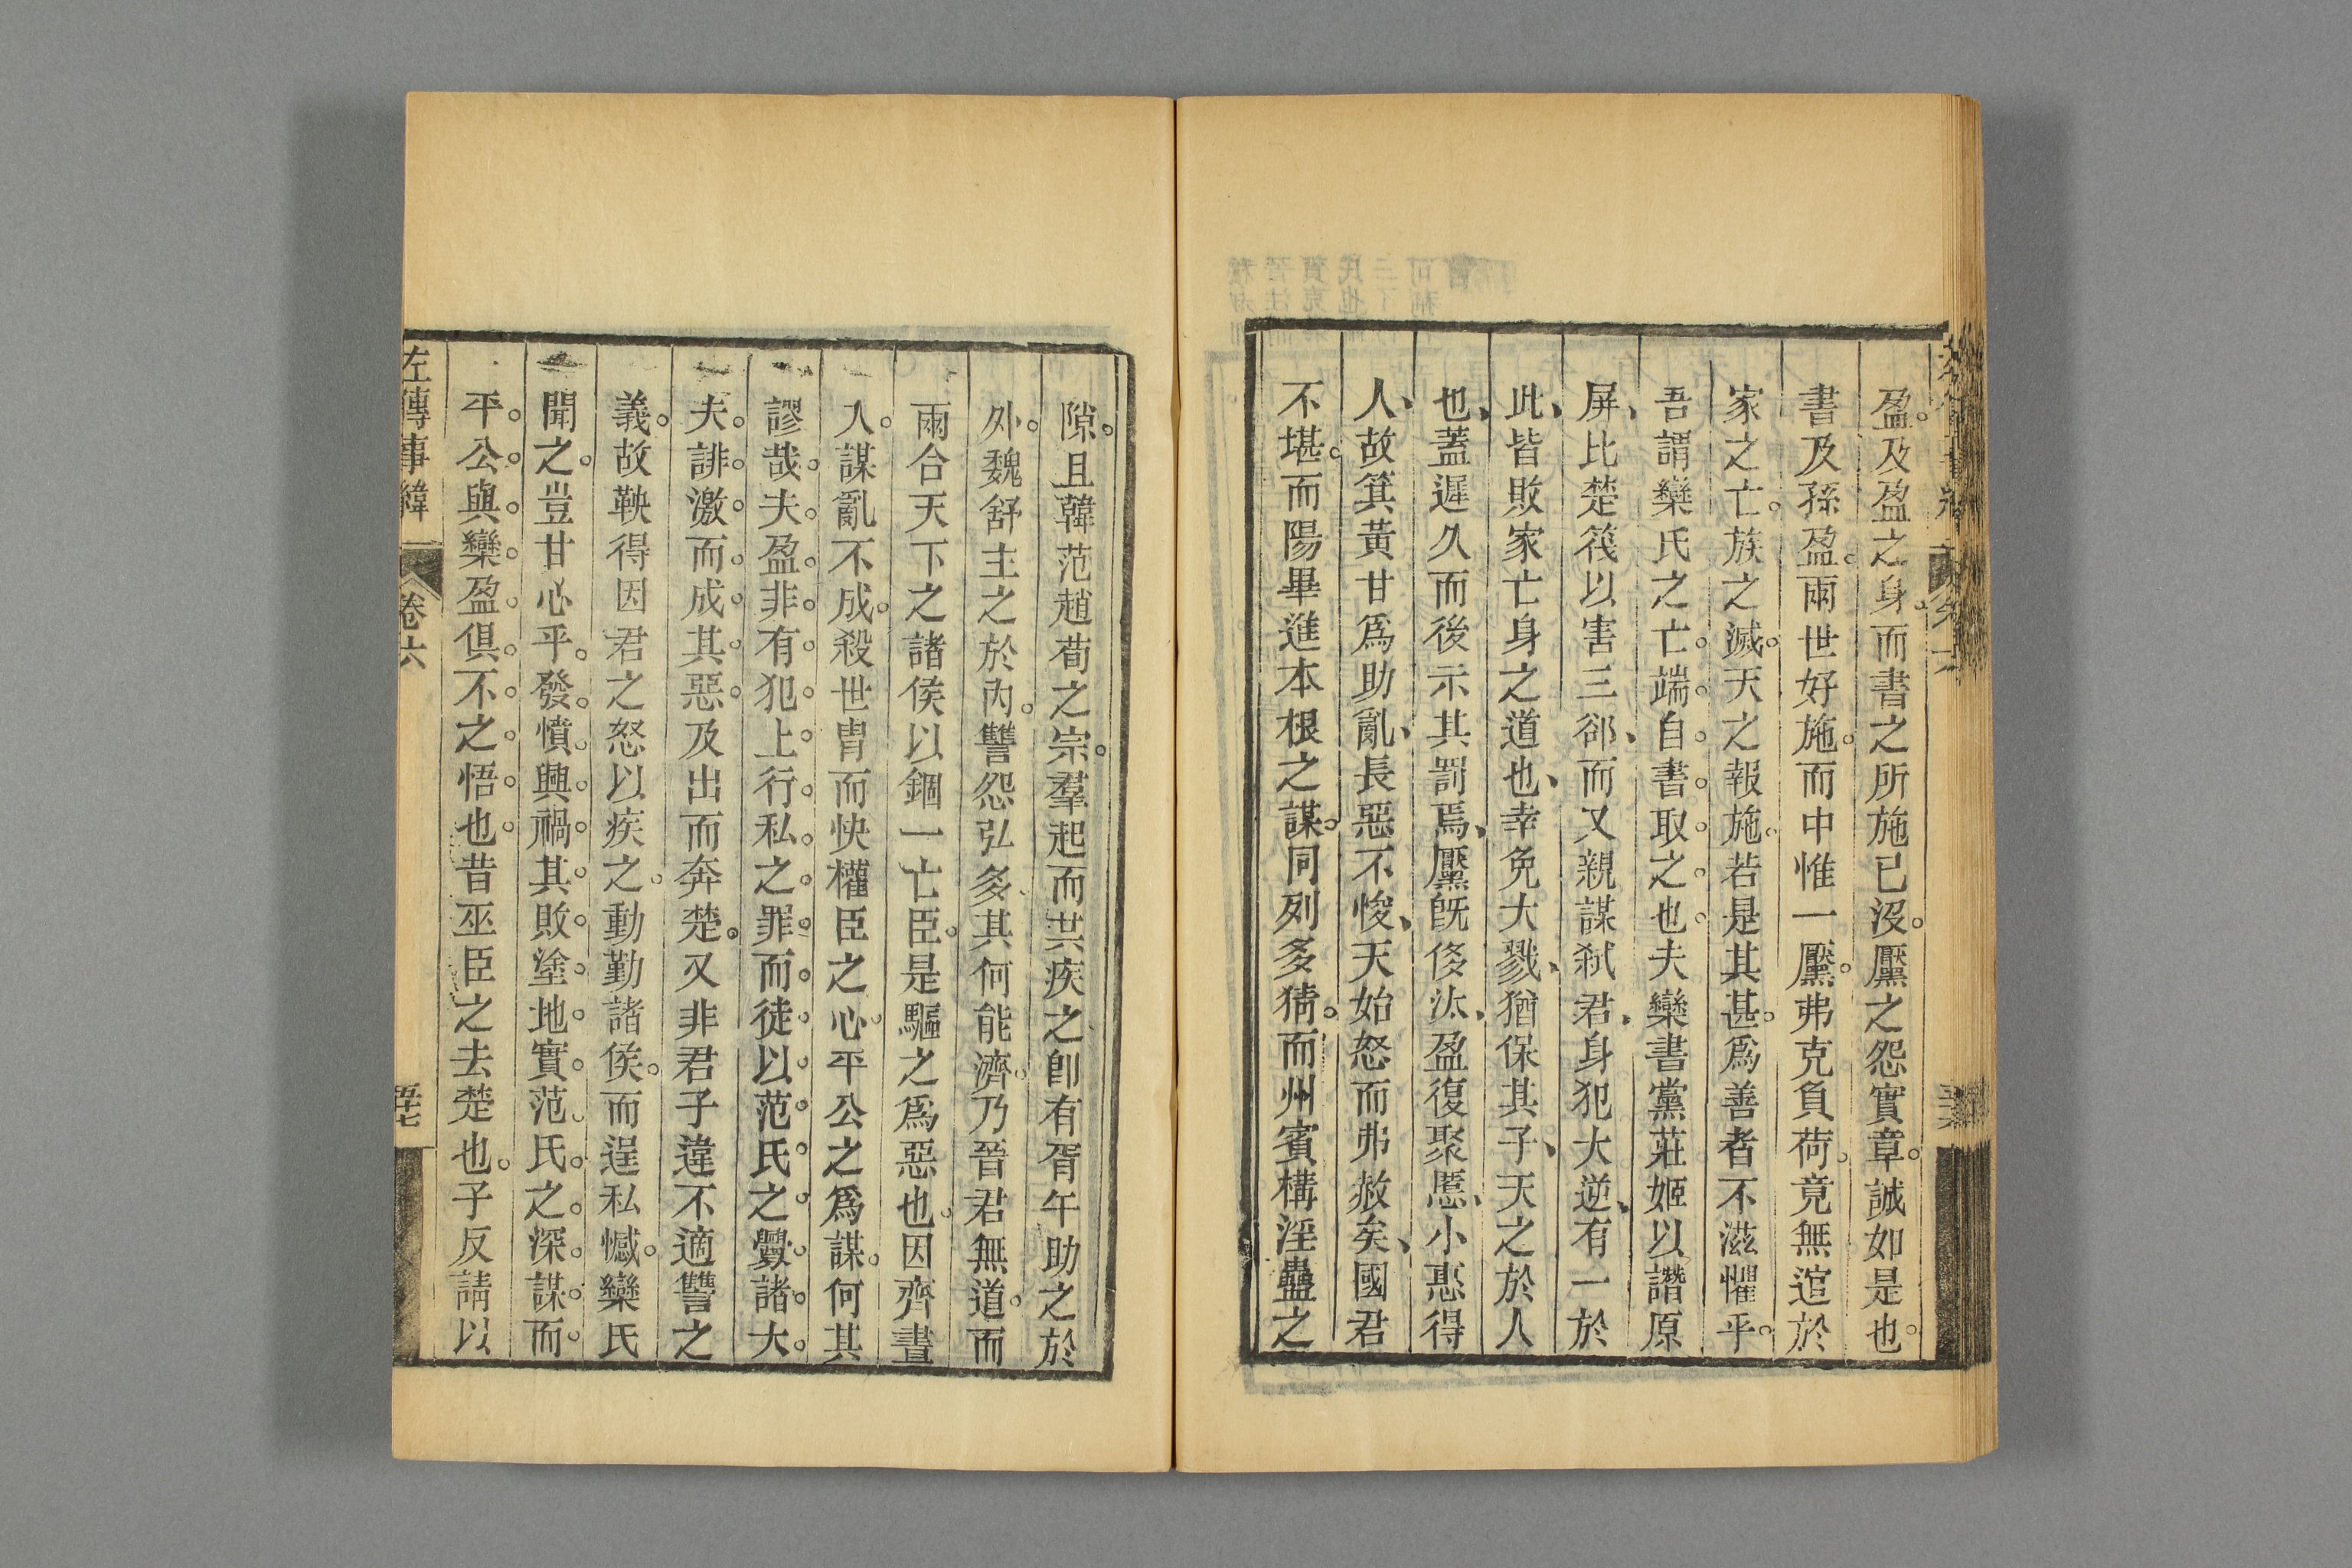 盈及盈之身而書之所施已沒黶之怨實章誠如是也
書及孫盈兩世好施而中惟一黶弗克負荷竟無逭於
家之亡族之滅天之報施若是其甚爲善者不滋懼乎
吾謂欒氏之亡端自書取之也夫欒書黨莊姬以譖原
屏比楚筏以害三郤而又親謀弑君身犯大逆有一於
此皆敗家亡身之道也幸免大戮猶保其子天之於人
也蓋遲久而後示其罰焉黶旣侈汰盈復聚慝小惠得
人故箕黃甘爲助亂長惡不悛天始怒而弗赦矣國君
不堪而陽畢進本根之謀同列多猜而州賓構淫蠱之
隙且韓范趙荀之宗羣起而共疾之卽有胥午助之於
外魏舒主之於內讐怨弘多其何能濟乃晉君無道而
兩合天下之諸侯以錮一亡臣是驅之爲惡也因齊晝
入謀亂不成殺世冑而快權臣之心平公之爲謀何其
謬哉夫盈非有犯上行私之罪而徒以范氏之釁諸大
夫誹激而成其惡及出而奔楚又非君子違不適讐之
義故鞅得因君之怒以疾之動勤諸侯而逞私憾欒氏
聞之豈甘心乎發憤興禍其敗塗地實范氏之深謀而
平公與欒盈俱不之悟也昔巫臣之去楚也子反請以
左傳事緯
卷六